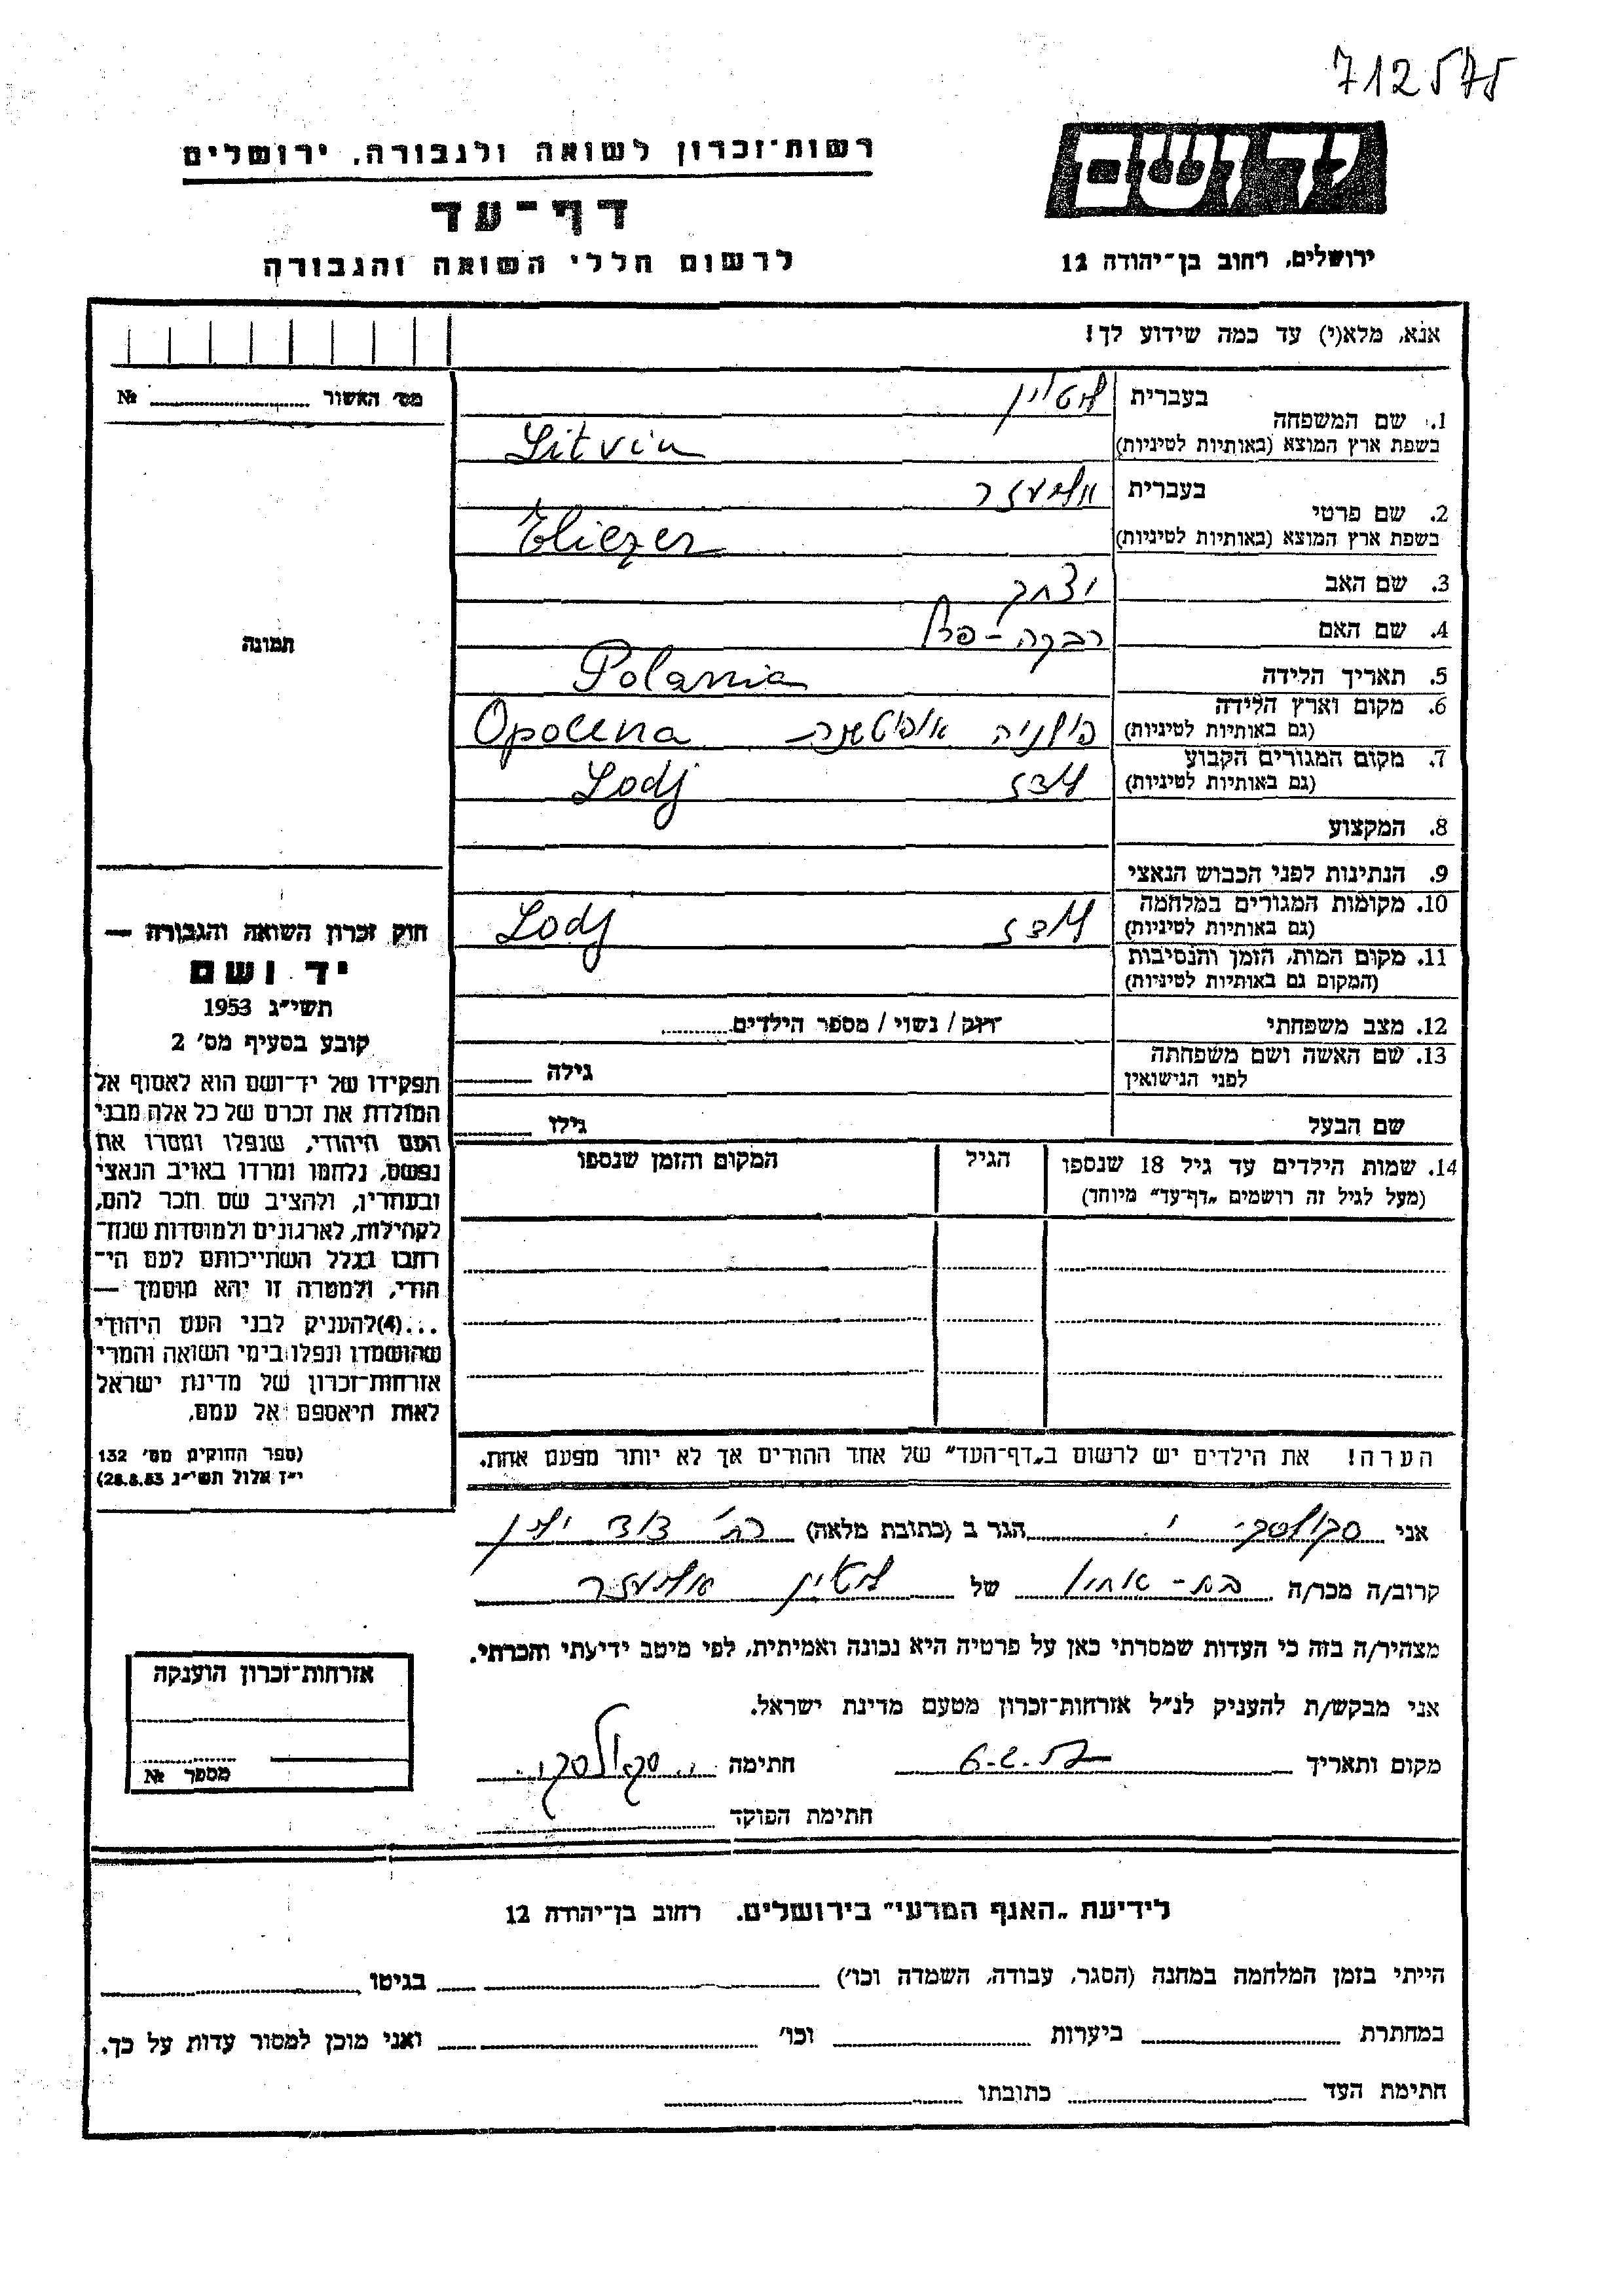 712575
רשות־זכרון לשואה ולגבורה, ירושלים
דף־עד
לרשום חללי השואה והגבורה
יד ושם
ירושלים, רחוב בן־יהודה 12
אנא, מלא(י) עד כמה שידוע לך!
מס׳ האשור № 
תמונה
1. שם המשפחה
בעברית ליטוין
בשפת ארץ המוצא (באותיות לטיניות) Litvin
2. שם פרטי
בעברית אליעזר
בשפת ארץ המוצא (באותיות לטיניות) Eliezer
3. שם האב יצחק
4. שם האם רבקה -
5. תאריך הלידה Polania
6. מקום וארץ הלידה
(גם באותיות לטיניות) פולניה Opolena
7. מקום המגורים הקבוע
(גם באותיות לטיניות) לודז Lodj
8. המקצוע
9. הנתינות לפני הכבוש הנאצי
10. מקומות המגורים במלחמה
(גם באותיות לטיניות) לודז Lodj
11. מקום המות, הזמן והנסיבות
(המקום גם באותיות לטיניות)
12. מצב משפחתי רווק / נשוי / מספר הילדים
13. שם האשה ושם משפחתה
לפני הנישואין גילה
שם הבעל גילו
14. שמות הילדים עד גיל 18 שנספו הגיל המקום והזמן שנספו
(מעל לגיל זה רושמים „דף־עד״ מיוחד)
הערה! את הילדים יש לרשום ב„דף־העד״ של אחד ההורים אך לא יותר מפעם אחת.
חוק זכרון השואה והגבורה —
יד ושם
תשי״ג 1953
קובע בסעיף מס׳ 2
תפקידו של יד־ושם הוא לאסוף אל
המולדת את זכרם של כל אלה מבני
העם היהודי, שנפלו ומסרו את
נפשם, נלחמו ומרדו באויב הנאצי
ובעוזריו, ולהציב שם וזכר להם,
לקהילות, לארגונים ולמוסדות שנח־
רבו בגלל השתייכותם לעם הי־
הודי, ולמטרה זו יהא מוסמך —
...(4)להעניק לבני העם היהודי
שהושמדו ונפלו בימי השואה והמרי
אזרחות־זכרון של מדינת ישראל
לאות היאספם אל עמם.
(ספר החוקים מס׳ 132
י״ז אלול תשי״ג 28.8.53)
אני סקולסקי י. הגר ב (כתובת מלאה)
קרוב/ה מכר/ה בת-אחיו של ליטוין אליעזר
מצהיר/ה בזה כי העדות שמסרתי כאן על פרטיה היא נכונה ואמיתית, לפי מיטב ידיעתי והכרתי.
אני מבקש/ת להעניק לנ״ל אזרחות־זכרון מטעם מדינת ישראל.
מקום ותאריך חתימה
חתימת הפוקד
אזרחות־זכרון הוענקה
מספר №
לידיעת „האגף המדעי״ בירושלים. רחוב בן־יהודה 12
הייתי בזמן המלחמה במחנה (הסגר, עבודה, השמדה וכו׳) בגיטו
במחתרת ביערות וכו׳ ואני מוכן למסור עדות על כך.
חתימת העד כתובתו